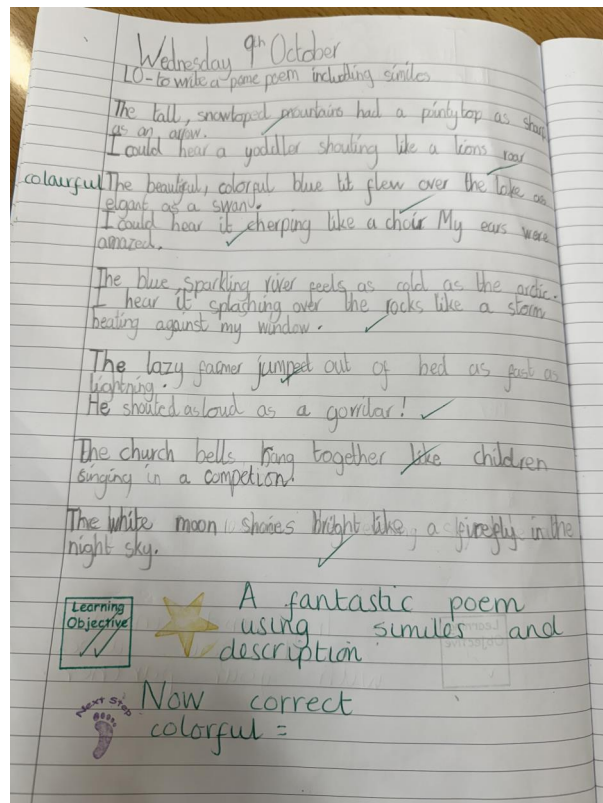 Wednesday 9th October
LO-to write a pome poem including similes
The tall, snowtoped mountains had a pointytop as sharp
as an arow.
I could hear a yodiller shouting like a lions roar
colourful The beautiful, colorful blue tit flew over the lake as
elgant as a swan.
I could hear it cherping like a choir My ears were
amazed.
The blue, sparkling river feels as cold as the ardic.
I hear it splashing over the rocks like a storm
beating against my window.
The lazy farmer jumped out of bed as fast as
lightning.
He shouted as loud as a gorrilar!
The church bells bang together like children
singing in a competion.
The white moon shones bright like a firefly in the
night sky.
Learning
Objective
A fantastic poem
using similes and
description
Next Step
Now correct
colorful =